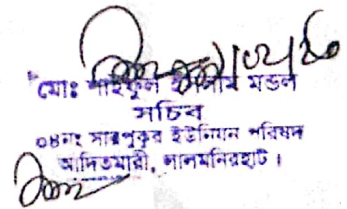 মোঃ সাইফুল ইসলাম মন্ডল
সচিব
০৪নং সারপুকুর ইউনিয়ন পরিষদ
আদিতমারী, লালমনিরহাট।